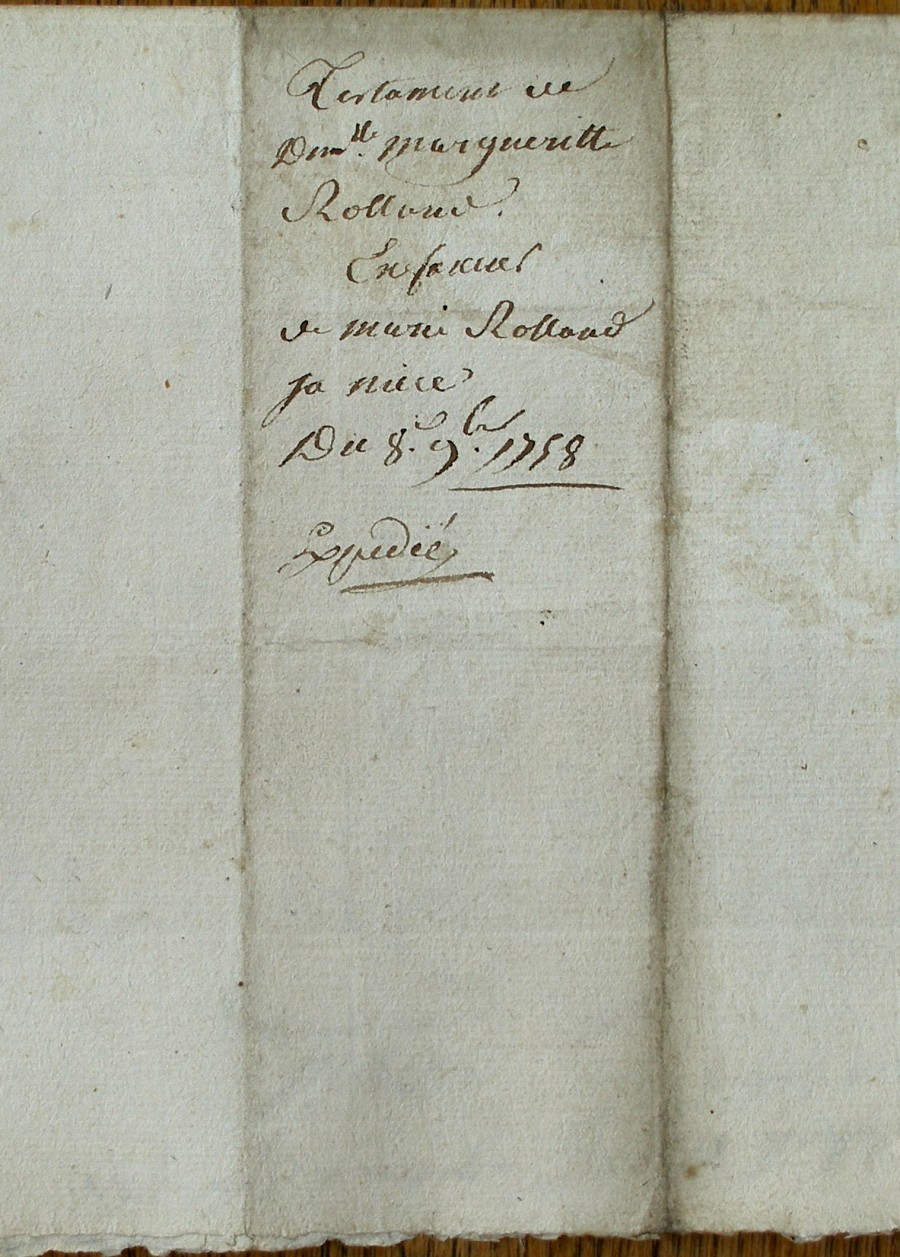 Testament de
Dm.lle margueritte
Rolland.
En faveur
de marie Rolland
sa niece
Du 8.e 9.bre 1758
Expedié